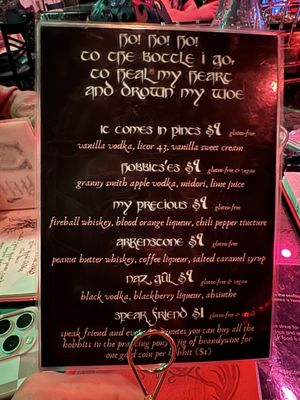 ho! ho! ho!
to the bottle i go,
to heal my heart
and drown my woe
it comes in pints $9 gluten-free
vanilla vodka, licor 43, vanilla sweet cream
hobbits'es $9 gluten-free & vegan
granny smith apple vodka, midori, lime juice
my precious $9 gluten-free
fireball whiskey, blood orange liqueur, chili pepper tincture
arkenstone $9 gluten-free
peanut butter whiskey, coffee liqueur, salted caramel syrup
naz gûl $9 gluten-free & vegan
black vodka, blackberry liqueur, absinthe
speak friend $1 gluten-free & vegan
speak friend and ev minutes you can buy all the
hobbits in the pra ing pony ig of brandywine for
one gold coin per obbit ($1)